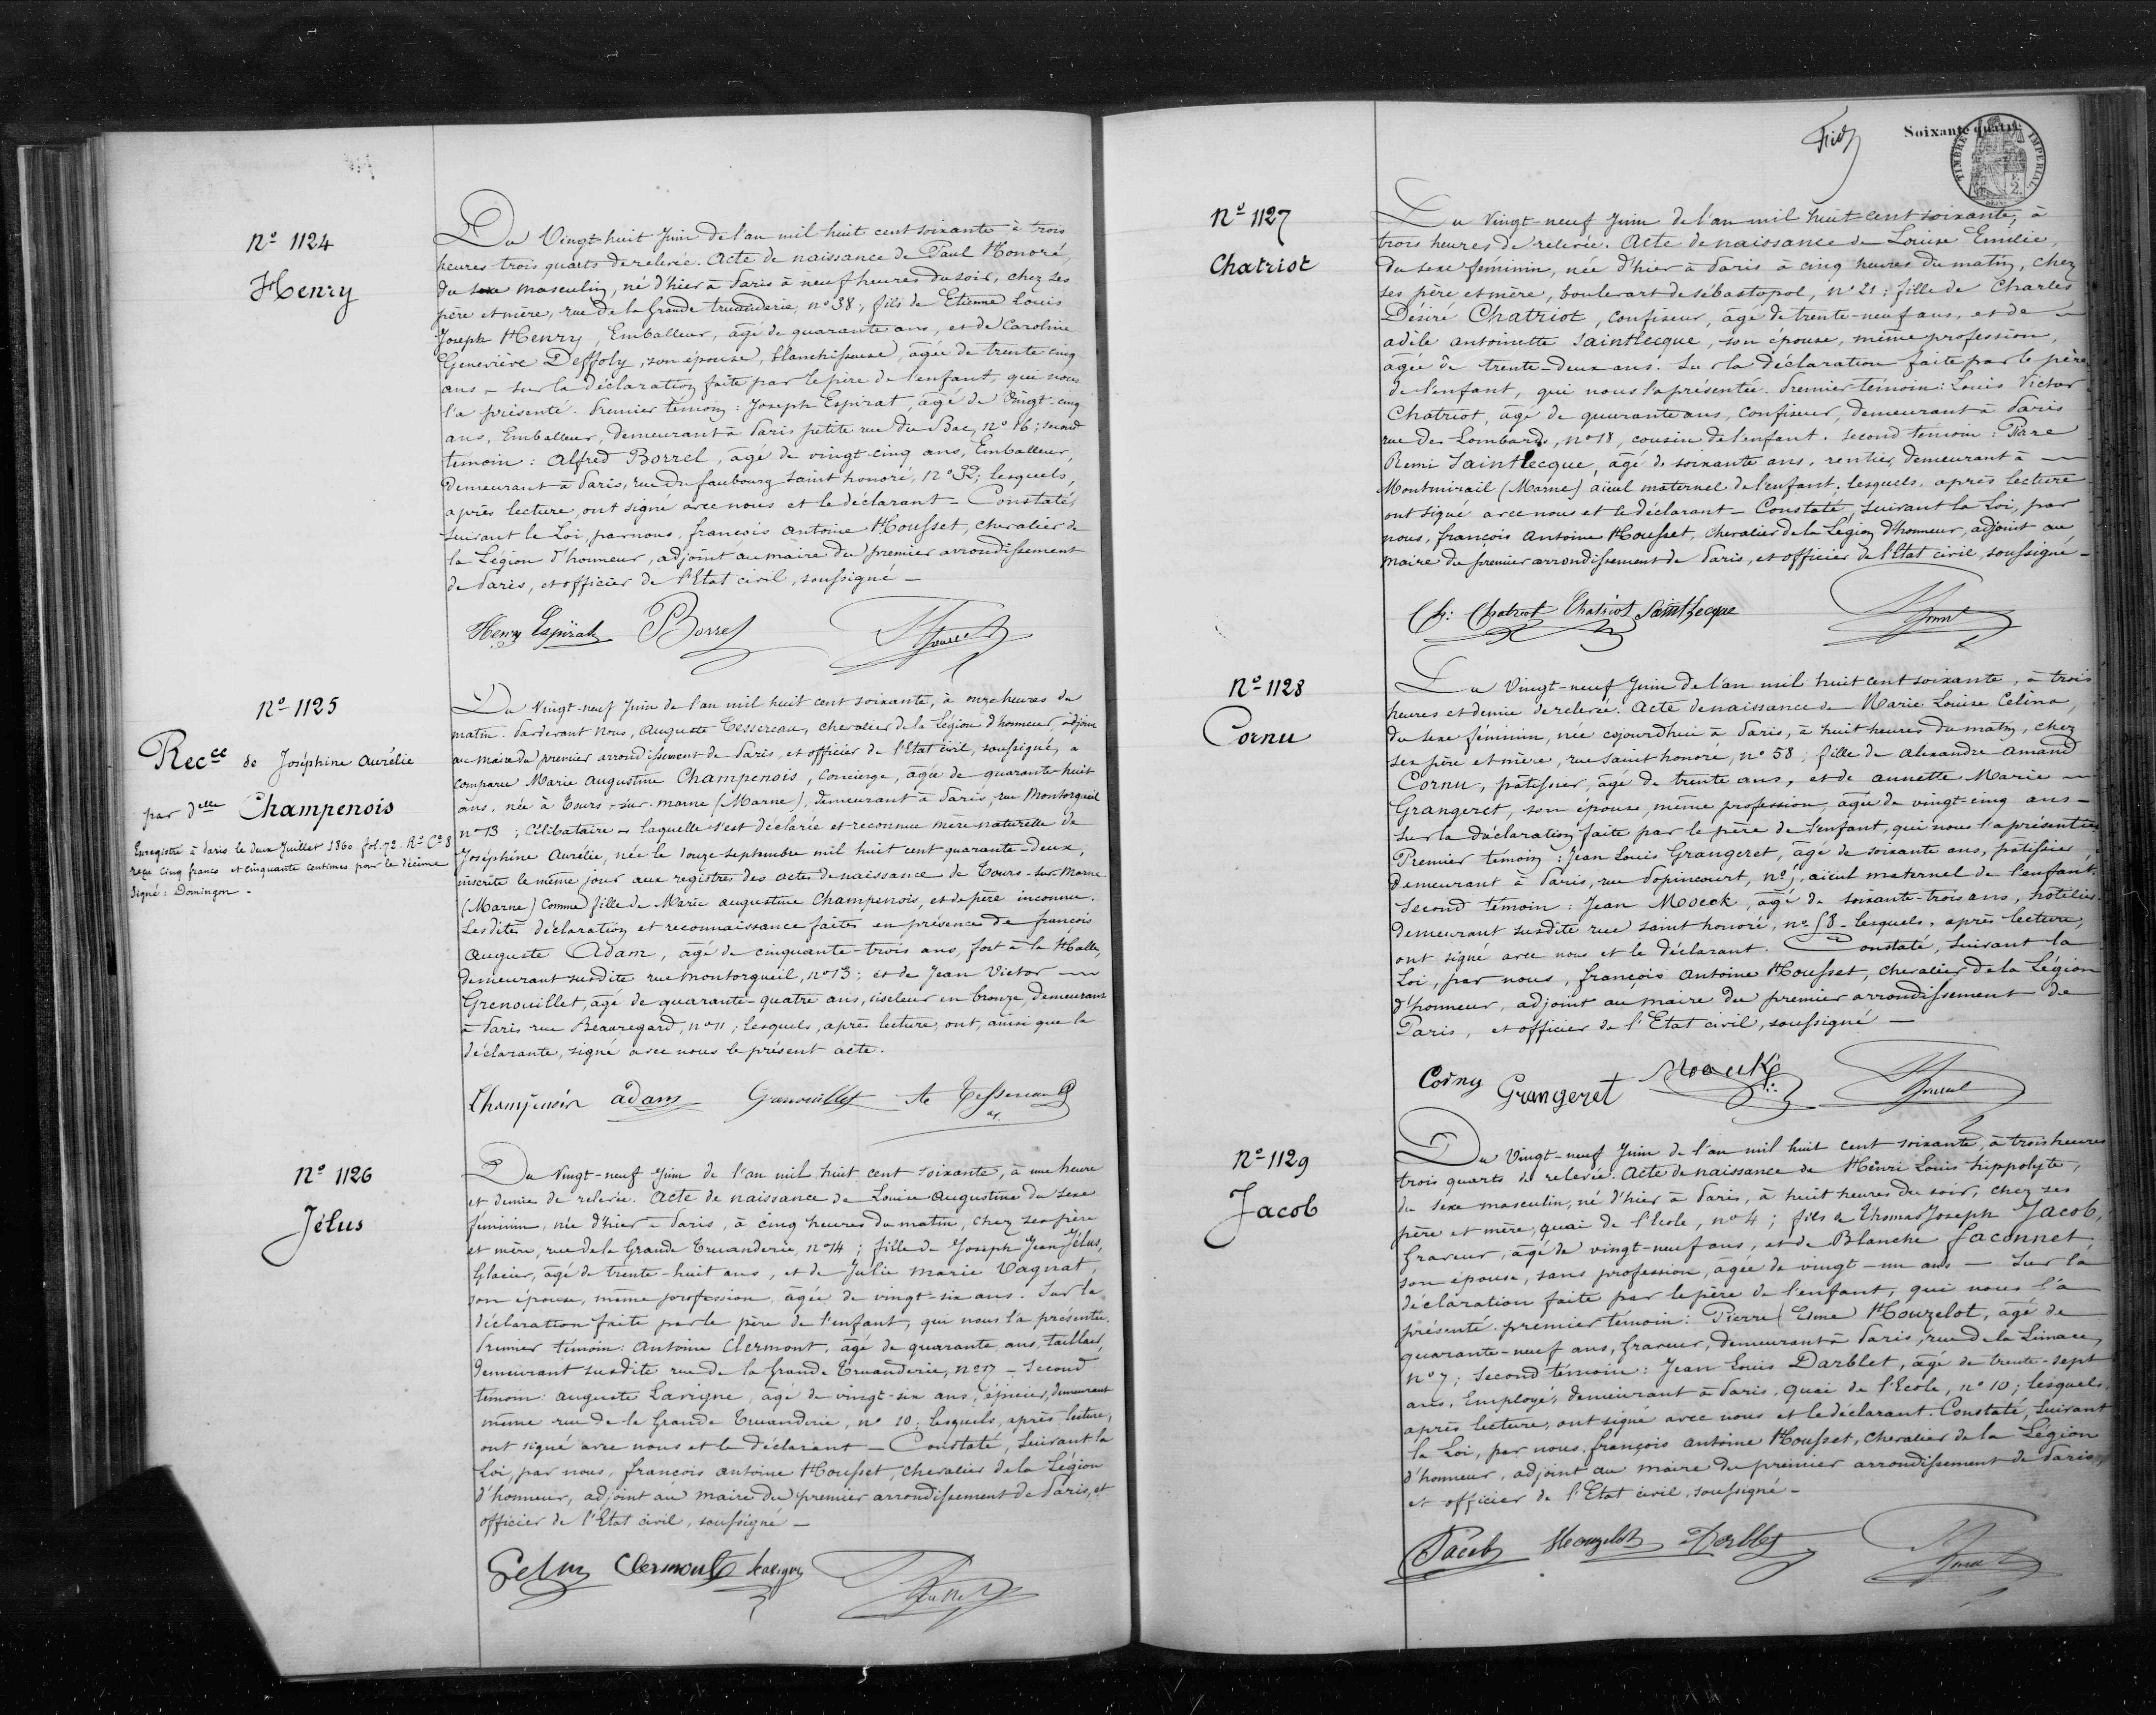 Nº 1124
Henry
Du Vingt-huit Juin de l'an mil huit cent soixante à trois
heures trois quarts de relevée. Acte de naissance de Paul Honoré,
du sexe masculin, né d'hier à Paris à neuf heures du soir, chez ses
père et mère, rue de la grande truanderie, nº 38; fils de Etienne Louis
Joseph Henry, Emballeur, âgé de quarante ans, et de Caroline
Geneviève Deffoly, son épouse, blanchisseuse, âgée de trente cinq
ans - sur la déclaration faite par le père de l'enfant, qui nous
l'a présenté. Premier témoin: Joseph Espirat, âgé de vingt-cinq
ans, Emballeur, demeurant à Paris petite rue du Bac, nº 16; second
témoin: Alfred Borrel, âgé de vingt-cinq ans, Emballeur,
demeurant à Paris, rue du faubourg saint honoré, nº 32; lesquels,
après lecture, ont signé avec nous et le déclarant - Constaté,
suivant la Loi, par nous, françois Antoine Housset, chevalier de
la Légion d'honneur, adjoint au maire du premier arrondissement
de Paris, et officier de l'Etat civil, soussigné -
Henry Espirat Borrel Housset
Nº 1125
Recce de Joséphine Aurélie
par delle Champenois
Enregistré à Paris le deux Juillet 1860 fol. 72. Rº Cº 8
reçu cinq francs et cinquante centimes pour le décime
Signé: Domingon -
Du Vingt-neuf Juin de l'an mil huit cent soixante, à onze heures du
matin. Pardevant Nous, Auguste Tessereau, chevalier de la Légion d'honneur, adjoint
au maire du premier arrondissement de Paris, et officier de l'Etat civil, soussigné, a
comparu Marie Augustine Champenois, concierge, âgée de quarante-huit
ans, née à Tours-sur-marne (Marne), demeurant à Paris, rue Montorgueil
nº 13; célibataire - laquelle s'est déclarée et reconnue mère naturelle de
Joséphine Aurélie, née le douze septembre mil huit cent quarante-deux,
inscrite le même jour aux registres des actes de naissance de Tours-sur Marne
(Marne) comme fille de Marie augustine Champenois, et de père inconnu.
Lesdites déclaration et reconnaissance faites en présence de françois
Auguste Adam, âgé de cinquante-trois ans, fort à la Halle,
demeurant susdite rue montorgueil, nº 13; et de Jean Victor
Grenouillet, âgé de quarante-quatre ans, ciseleur en bronze, demeurant
à Paris rue Beauregard, nº 11; lesquels, après lecture, ont, ainsi que la
déclarante, signé avec nous le présent acte.
Champenois adam Grenouillet Ate Tessereau
Nº 1126
Jélus
Du Vingt-neuf Juin de l'an mil huit cent soixante, à une heure
et demie de relevée. Acte de naissance de Louise Augustine du sexe
féminin, née d'hier à Paris, à cinq heures du matin, chez ses père
et mère, rue de la Grande Truanderie, nº 14; fille de Joseph Jean Jélus,
Glacier, âgé de trente-huit ans, et de Julie marie Vagnat,
son épouse, même profession, âgée de vingt-six ans. Sur la
déclaration faite par le père de l'enfant, qui nous l'a présentée.
Premier témoin: Antoine Clermont, âgé de quarante ans, tailleur,
demeurant susdite rue de la Grande Truanderie, nº 17 - Second
témoin: auguste Lavigne, âgé de vingt-six ans, épicier, demeurant
même rue de la Grande Truanderie, nº 10; lesquels, après lecture,
ont signé avec nous et le déclarant - Constaté, suivant la
Loi, par nous, françois antoine Housset, chevalier de la Légion
d'honneur, adjoint au maire du premier arrondissement de Paris, et
officier de l'Etat civil, soussigné -
Gelus Clermont Lavigne Housset
Soixante quatre
TIMBRE IMPERIAL
Nº 1127
Chatriot
Du Vingt-neuf Juin de l'an mil huit cent soixante, à
trois heures de relevée. Acte de naissance de Louise Emilie,
du sexe féminin, née d'hier à Paris à cinq heures du matin, chez
ses père et mère, boulevart de sébastopol, nº 21; fille de Charles
Désiré Chatriot, confiseur, âgé de trente-neuf ans, et de
adèle antoinette Saintlecque, son épouse, même profession,
âgée de trente-deux ans. Sur la déclaration faite par le père
de l'enfant, qui nous l'a présentée. Premier témoin: Louis Victor
Chatriot, âgé de quarante ans, confiseur, demeurant à Paris
rue des Lombards, nº 18, cousin de l'enfant. second témoin:
Remi Saintlecque, âgé de soixante ans, rentier, demeurant à
Montmirail (Marne) aïeul maternel de l'enfant; lesquels, après lecture
ont signé avec nous et le déclarant - Constaté, suivant la Loi, par
nous, françois Antoine Housset, Chevalier de la Légion d'honneur, adjoint au
maire du premier arrondissement de Paris, et officier de l'Etat civil, soussigné -
Ch: Chatriot Chatriot Saintlecque Housset
Nº 1128
Cornu
Du Vingt-neuf Juin de l'an mil huit cent soixante, à trois
heures et demie de relevée. Acte de naissance de Marie Louise Celina,
du sexe féminin, née aujourd'hui à Paris, à huit heures du matin, chez
ses père et mère, rue saint honoré, nº 58; fille de alexandre amand
Cornu, pâtissier, âgé de trente ans, et de annette Marie
Grangeret, son épouse, même profession, âgée de vingt-cinq ans -
Sur la déclaration faite par le père de l'enfant, qui nous l'a présentée
Premier témoin: Jean Louis Grangeret, âgé de soixante ans, pâtissier
demeurant à Paris, rue Popincourt, nº 1, aïeul maternel de l'enfant.
Second témoin: Jean Moeck, âgé de soixante-trois ans, hôtelier
demeurant susdite rue saint honoré, nº 58 - lesquels, après lecture,
ont signé avec nous et le déclarant. Constaté, suivant la
Loi, par nous, françois Antoine Housset, chevalier de la Légion
d'honneur, adjoint au maire du premier arrondissement de
Paris, et officier de l'Etat civil, soussigné -
Cornu Grangeret Moeck Housset
Nº 1129
Jacob
Du Vingt-neuf Juin de l'an mil huit cent soixante, à trois heures
trois quarts de relevée. Acte de naissance de Henri Louis hippolyte,
du sexe masculin, né d'hier à Paris, à huit heures du soir, chez ses
père et mère, quai de l'Ecole, nº 4; fils de Thomas Joseph Jacob,
Graveur, âgé de vingt-neuf ans, et de Blanche Jaconnet
son épouse, sans profession, âgée de vingt-un ans - Sur la
déclaration faite par le père de l'enfant, qui nous l'a
présenté. premier témoin: Pierre Esme Houzelot, âgé de
quarante-neuf ans, graveur, demeurant à Paris, rue de la Limace,
nº 7; Second témoin: Jean Louis Darblet, âgé de trente-sept
ans, Employé, demeurant à Paris, quai de l'Ecole, nº 10; lesquels,
après lecture, ont signé avec nous et le déclarant. Constaté, suivant
la Loi, par nous, françois antoine Housset, chevalier de la Légion
d'honneur, adjoint au maire du premier arrondissement de Paris,
et officier de l'Etat civil, soussigné -
Jacob Houzelot Darblet Housset